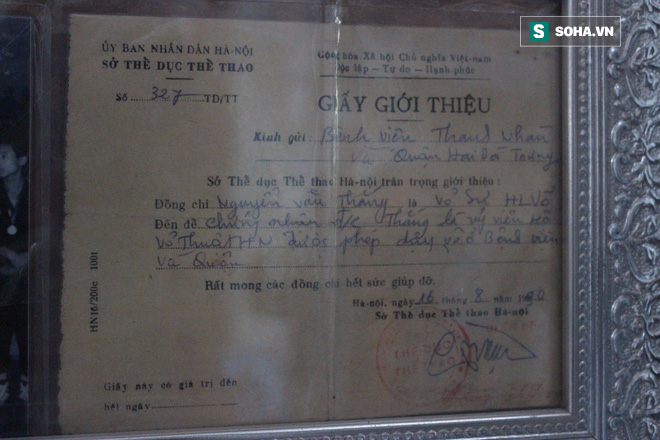 S SOHA.VN
ỦY BAN NHÂN DÂN HÀ-NỘI
SỞ THỂ DỤC THỂ THAO
Số 327 TD/TT
Cộng hòa Xã hội Chủ nghĩa Việt-nam
Độc lập - Tự do - Hạnh phúc
GIẤY GIỚI THIỆU
Kính gửi : Bệnh viện Thanh Nhàn
Và Quận Hai Bà Trưng
Sở Thể dục Thể thao Hà-nội trân trọng giới thiệu :
Đồng chí Nguyễn Văn Thắng là Võ Sư HLV
Đến để chứng nhận đ/c Thắng là ủy viên Hội
Võ Thuật HN được phép dạy võ ở Bệnh viện
Và Quận
Rất mong các đồng chí hết sức giúp đỡ.
Hà-nội, ngày 16 tháng 8 năm 1990
Sở Thể dục Thể thao Hà-nội
Giấy này có giá trị đến
hết ngày
HN16/200c 100t